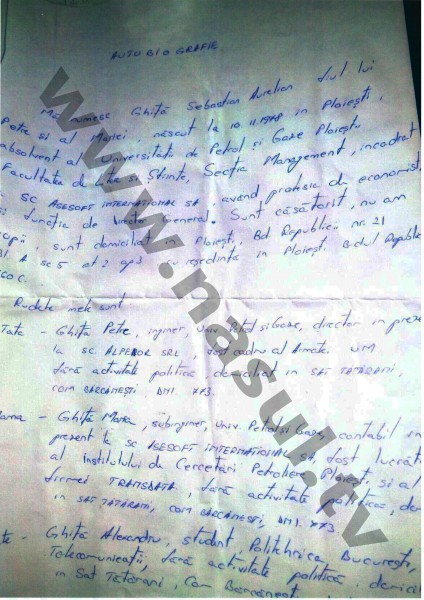 AUTOBIOGRAFIE
Mă numesc Ghiță Sebastian Aurelian fiul lui
Petre și al Mariei, născut la 10.11.1978 în Ploiești,
absolvent al Universității de Petrol și Gaze Ploiești
Facultatea de Lite și Științe, Secția Management, încadrat
SC ASESOFT INTERNATIONAL SA, având profesia de economist
și funcția de Director General. Sunt căsătorit, nu am
copii, sunt domiciliat în Ploiești, Bd Republicii nr. 21
Bl. A sc 5 et 2 ap 3 cu reședința în Ploiești Bldul Republicii
Rudele mele sunt
Tata - Ghiță Petre, inginer, Univ. Petrol și Gaze, director în prezent
la SC. , fost cadru al Armatei
fără activitate politică domiciliat în SAT TĂTĂRANI,
COM BĂRCĂNEȘTI. DN1. 773.
Mama - Ghiță Maria, subinginer, Univ. Petrol și Gaze, contabil în
prezent la SC ASESOFT INTERNATIONAL SA, fost lucrăt
al institutului de Cercetări Petroliere Ploiești, și al
firmei TRANSDATA, fără activitate politică, do
în SAT TĂTĂRANI, COM BĂRCĂNEȘTI, DN1. 773.
- Ghiță Alexandru, student, Politehnica București,
Telecomunicații, fără activitate politică domicil
în Sat Tătărani, Com Bărcănești.
www.nasul.tv